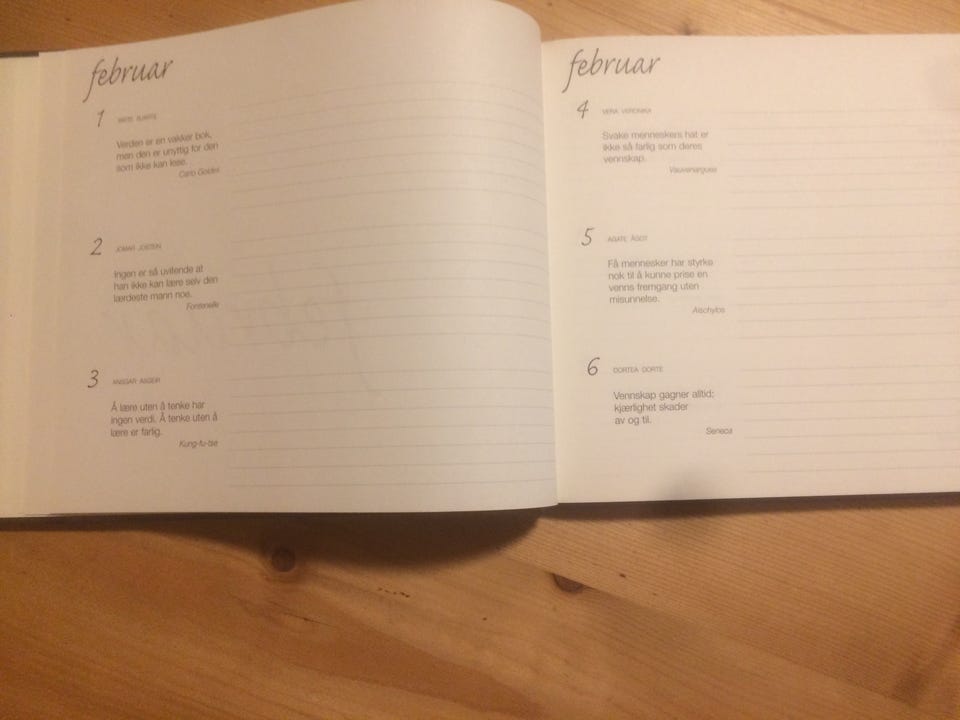 februar
1
Verden er en vakker bok,
men den er unyttig for den
som ikke kan lese.
Carlo Goldini
2 JOMAR JOSTEIN
Ingen er så uvitende at
han ikke kan lære selv den
lærdeste mann noe.
Fontenelle
3 ANSGAR ASGEIR
Å lære uten å tenke har
ingen verdi. Å tenke uten å
lære er farlig.
Kung-fu-tse
februar
4 VERA VERONIKA
Svake menneskers hat er
ikke så farlig som deres
vennskap.
Vauvenargues
5 AGATE ÅGOT
Få mennesker har styrke
nok til å kunne prise en
venns fremgang uten
misunnelse.
Aischylos
6 DORTEA DORTE
Vennskap gagner alltid;
kjærlighet skader
av og til.
Seneca